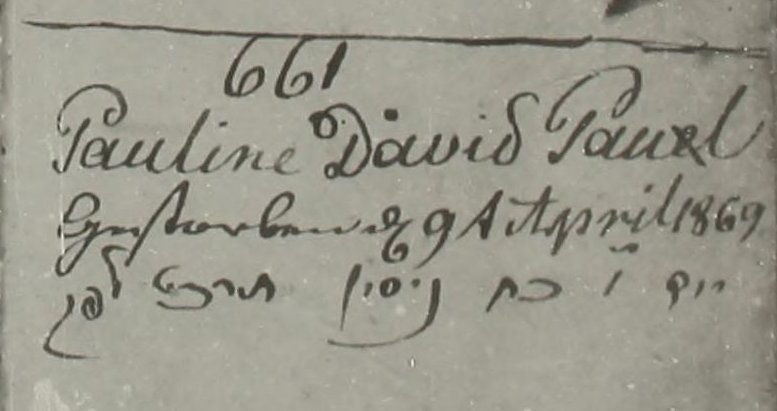 661
Pauline David Pauel
Gestorben d 9 t April 1869
יום ו׳ כח ניסן תרכט לפק